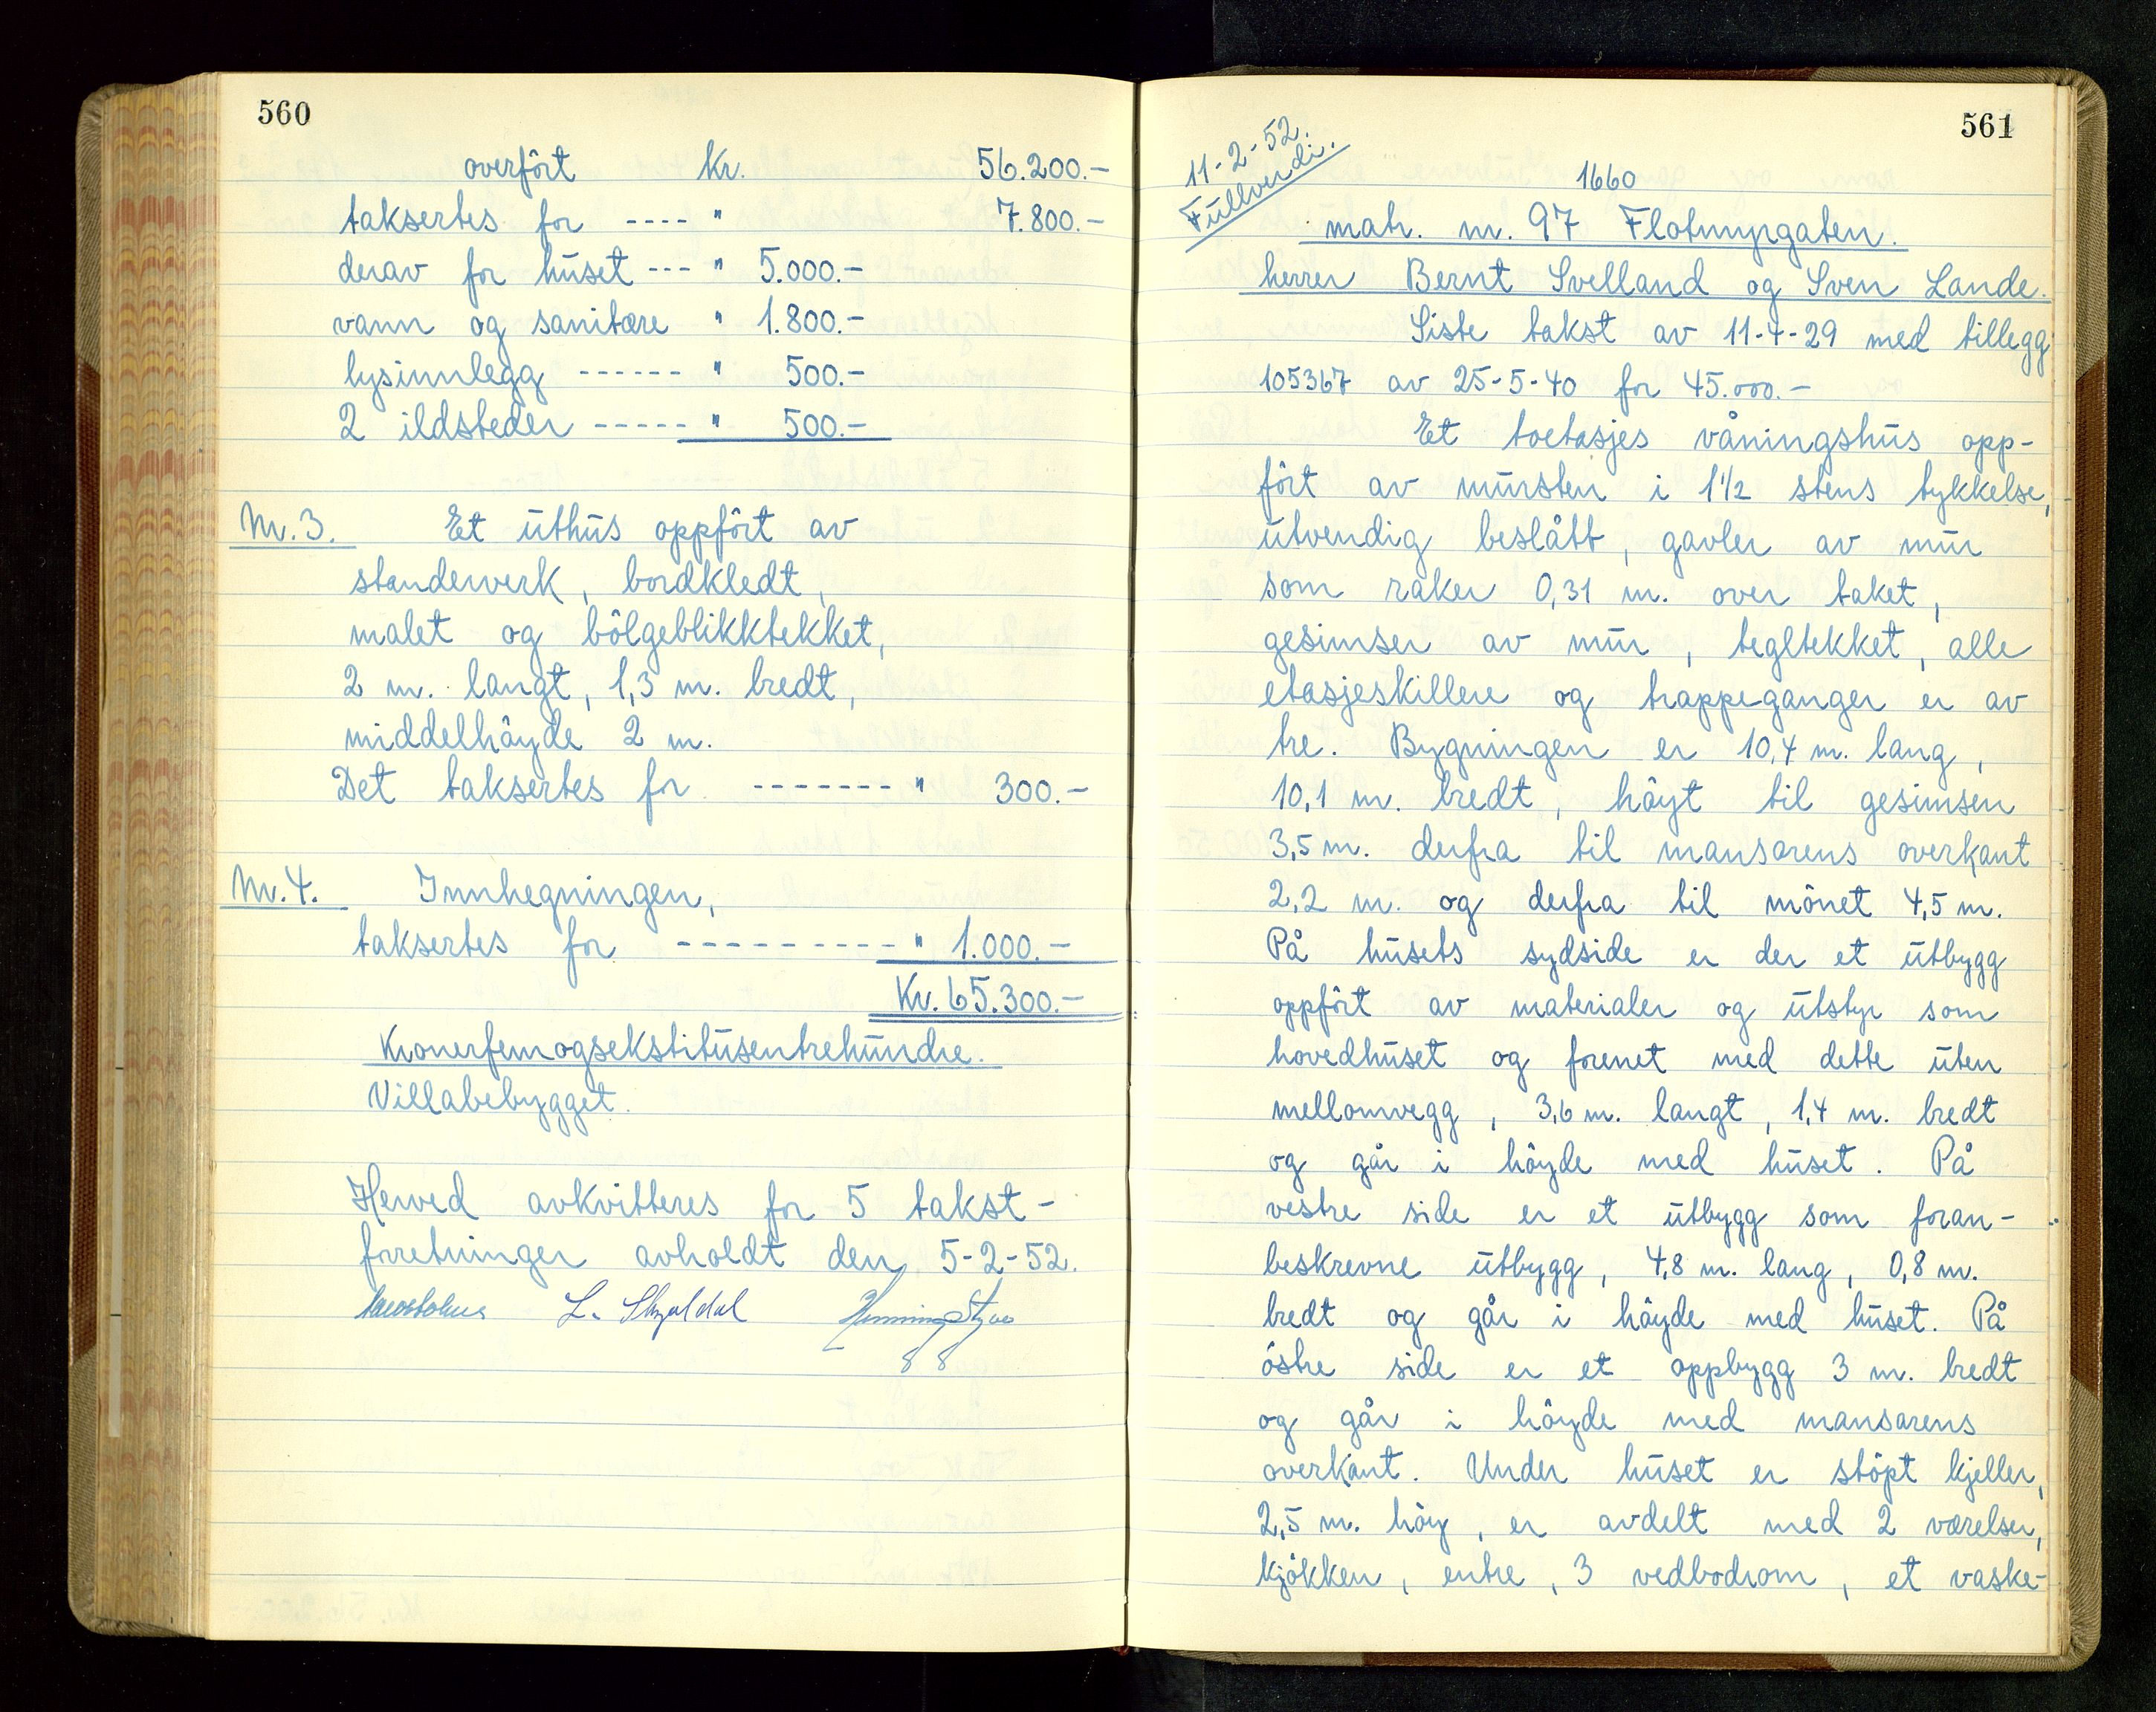 560
overført kr. 56.200.-
taksertes for ---- " 7.800.-
derav for huset --- " 5.000.-
vann og sanitære " 1.800.-
lysinnlegg ------ " 500.-
2 ildsteder ----- " 500.-
Nr. 3. Et uthus oppført av
standerverk, bordkledt,
malet og bølgeblikktekket,
2 m. langt, 1,3 m. bredt,
middelhøyde 2 m.
Det taksertes for ------- " 300.-
Nr. 4. Innhegningen,
taksertes for ---------- " 1.000.-
Kr. 65.300.-
Kronerfemogsekstitusentrehundre.
Villabebygget.
Herved avkvitteres for 5 takst-
forretninger avholdt den 5-2-52.
L. Skjoldal Henning
561
11-2-52.
Fullverdi.
1660
matr. nr. 97 Flotmyrgaten.
herrer Bernt Svelland og Sven Lande.
Siste takst av 11-4-29 med tillegg
105367 av 25-5-40 for 45.000.-
Et toetasjes våningshus opp-
ført av mursten i 1½ stens tykkelse,
utvendig beslått, gavler av mur
som raker 0,31 m. over taket,
gesimser av mur, tegltekket, alle
etasjeskillere og trappeganger er av
tre. Bygningen er 10,4 m. lang,
10,1 m. bredt, høyt til gesimsen
3,5 m. derfra til mansarens overkant
2,2 m. og derfra til mønet 4,5 m.
På husets sydside er der et utbygg
oppført av materialer og utstyr som
hovedhuset og forenet med dette uten
mellomvegg, 3,6 m. langt, 1,4 m. bredt
og går i høyde med huset. På
vestre side er et utbygg som foran-
beskrevne utbygg, 4,8 m. lang, 0,8 m.
bredt og går i høyde med huset. På
østre side er et oppbygg 3 m. bredt
og går i høyde med mansarens
overkant. Under huset er støpt kjeller,
2,5 m. høy, er avdelt med 2 værelser,
kjøkken, entre, 3 vedbodrom, et vaske-